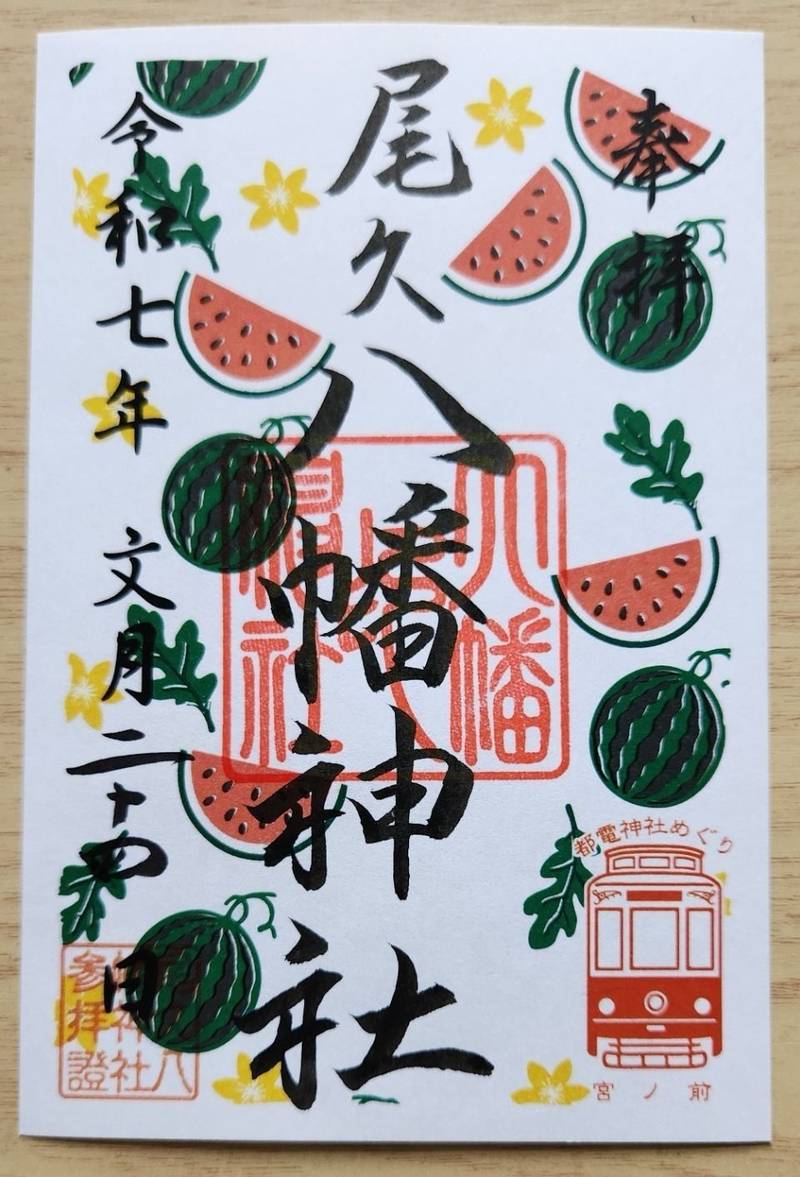 奉拝
尾久八幡神社
令和七年 文月二十四日
八幡
神社
都電神社めぐり
宮ノ前
参拝證